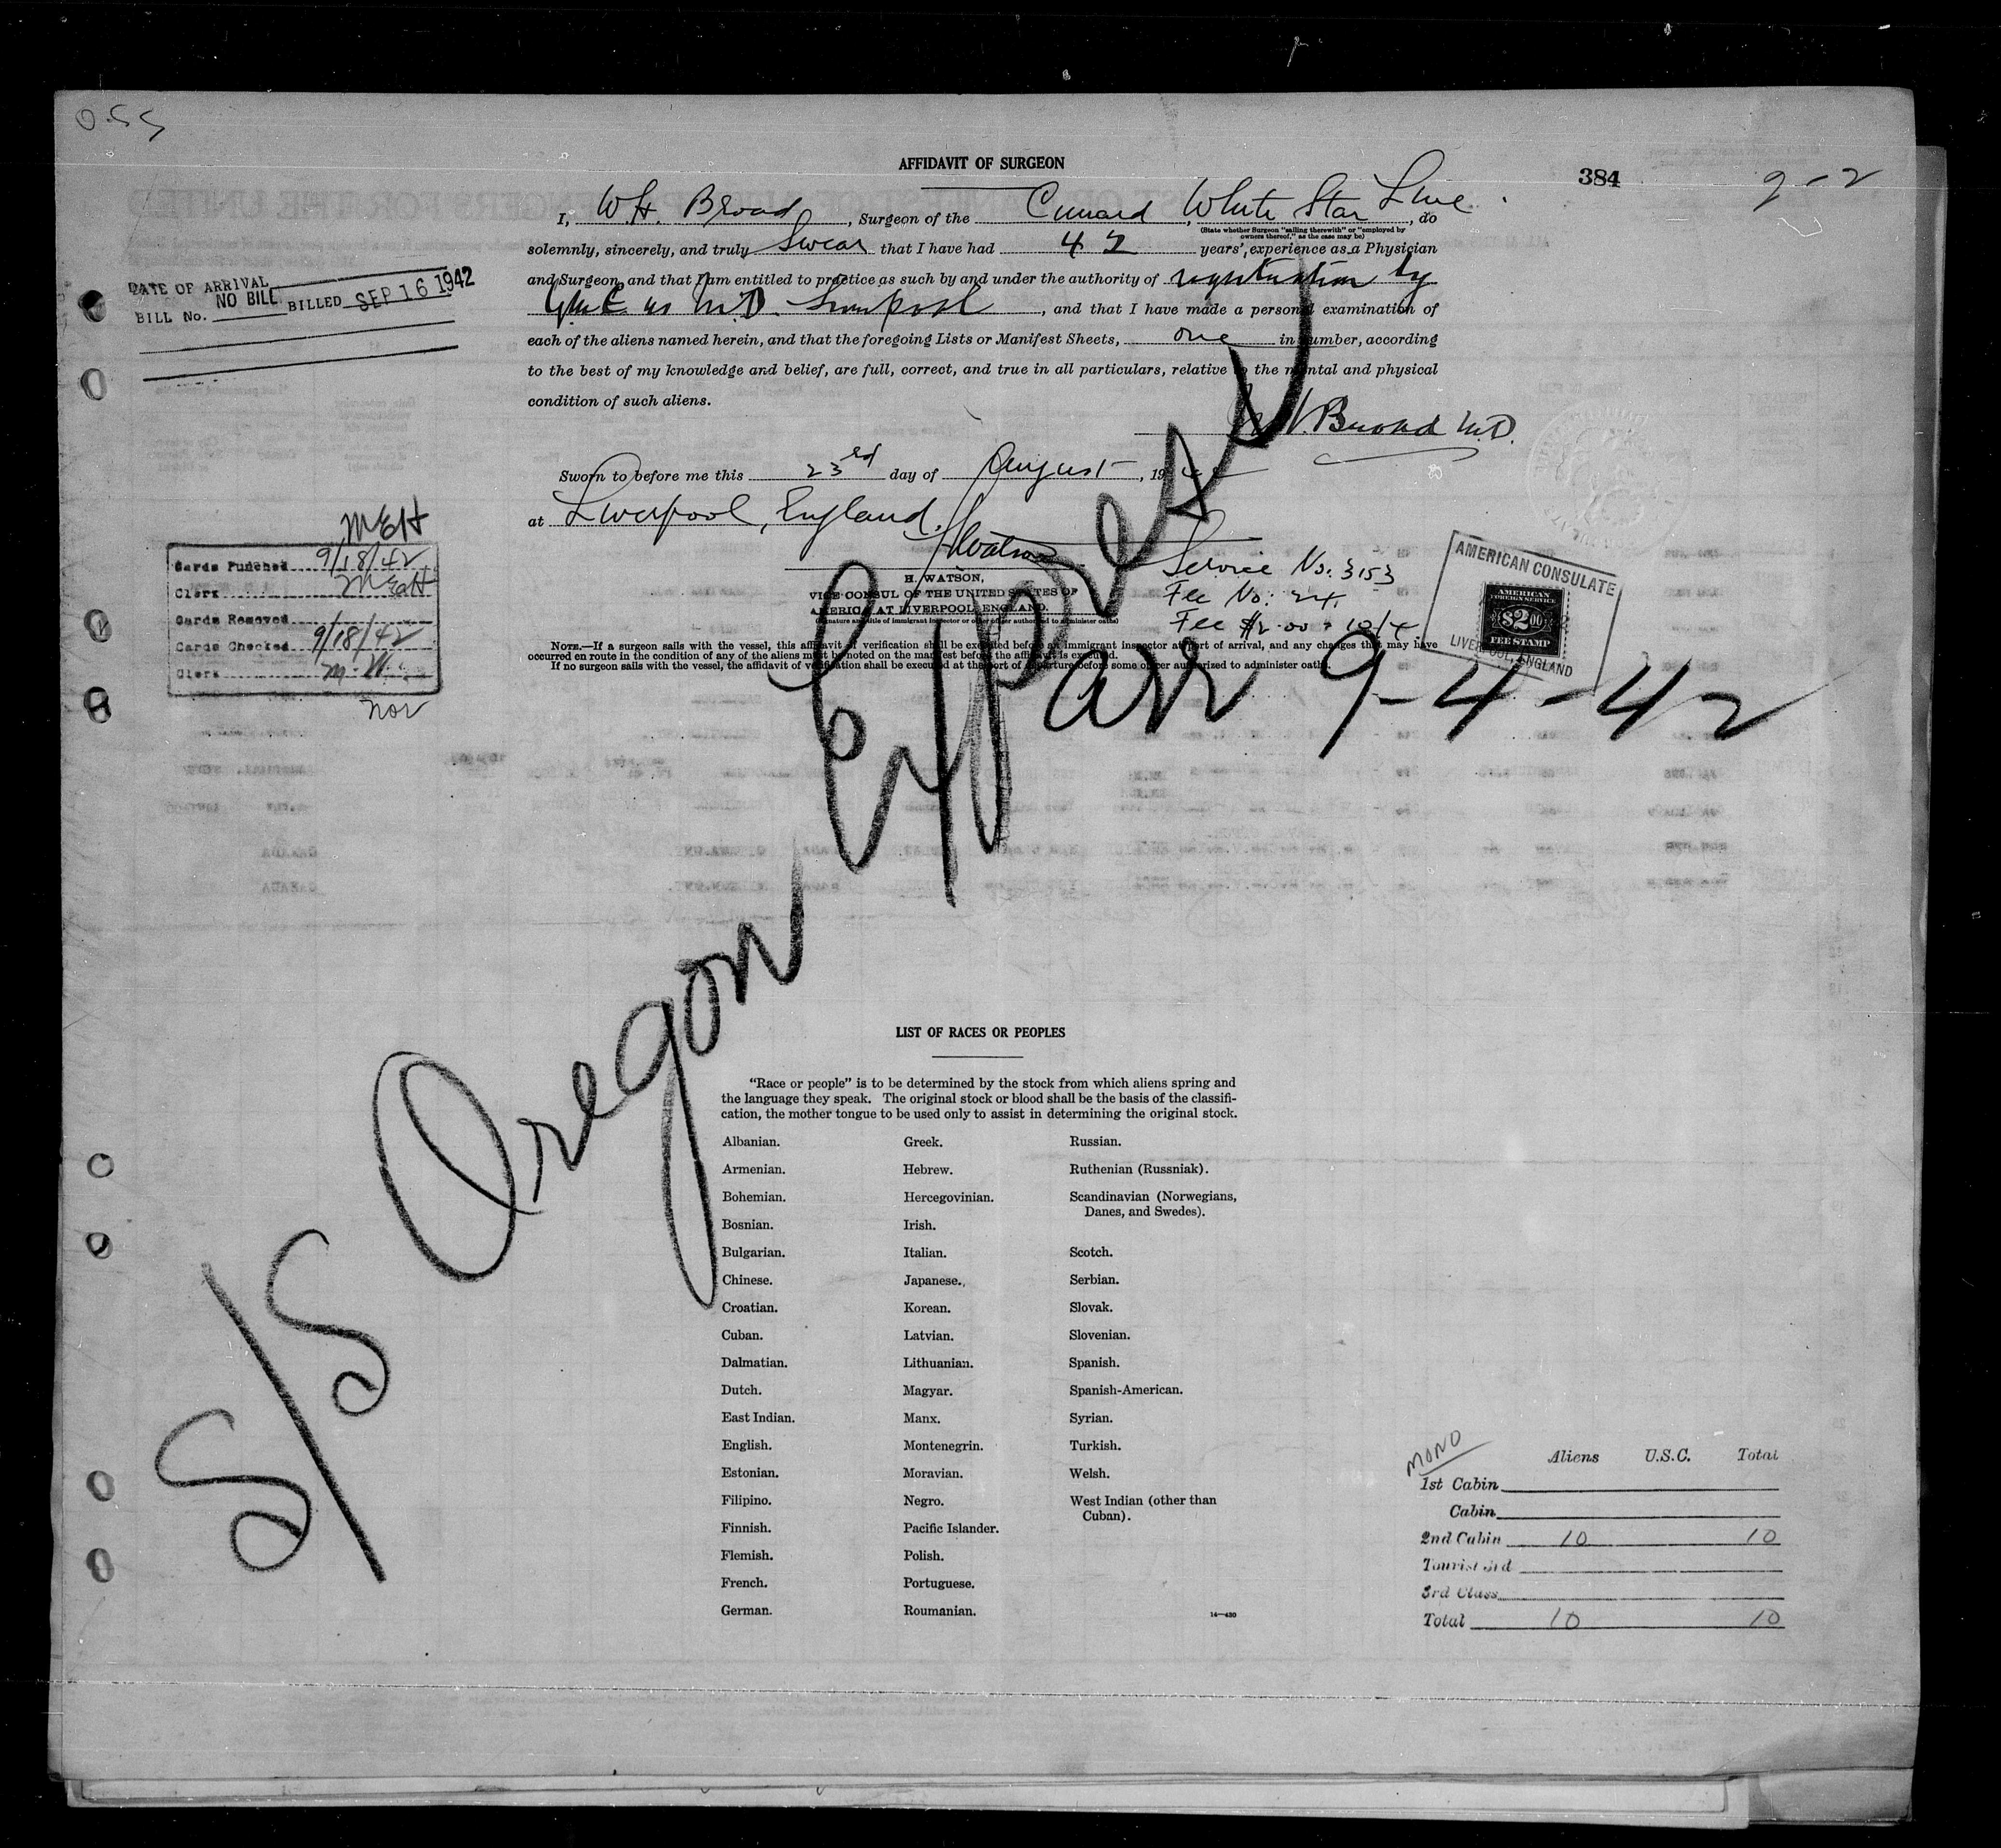 055
AFFIDAVIT OF SURGEON
384
9-2
I, W.H. Broad, Surgeon of the Cunard White Star Line, do
(State whether Surgeon "sailing therewith" or "employed by
owners thereof," as the case may be)
solemnly, sincerely, and truly Swear that I have had 42 years' experience as a Physician
and Surgeon, and that I am entitled to practice as such by and under the authority of registration by
as M.D. Liverpool, and that I have made a personal examination of
each of the aliens named herein, and that the foregoing Lists or Manifest Sheets, one in number, according
to the best of my knowledge and belief, are full, correct, and true in all particulars, relative to the mental and physical
condition of such aliens.
W.H. Broad M.D.
DATE OF ARRIVAL
BILL No. NO BILL BILLED SEP 16 1942
Sworn to before me this 23rd day of August, 194
at Liverpool, England.
H Watson
H. WATSON,
VICE CONSUL OF THE UNITED STATES OF
AMERICA AT LIVERPOOL, ENGLAND.
(Signature and title of immigrant inspector or other officer authorized to administer oaths)
Service No. 3153
Fee No: 24
Fee $2.00 = 10/4
AMERICAN CONSULATE
AMERICAN
FOREIGN SERVICE
$2.00
FEE STAMP
LIVERPOOL, ENGLAND
MEH
Cards Punched 9/18/42
Clerk MEH
Cards Removed
Cards Checked 9/18/42
Clerk M.W.
nor
NOTE.—If a surgeon sails with the vessel, this affidavit of verification shall be executed before an immigrant inspector at port of arrival, and any changes that may have
occurred en route in the condition of any of the aliens must be noted on the manifest before the affidavit is executed.
If no surgeon sails with the vessel, the affidavit of verification shall be executed at the port of departure before some officer authorized to administer oaths.
S/S Oregon Express
arr 9-4-42
LIST OF RACES OR PEOPLES
"Race or people" is to be determined by the stock from which aliens spring and
the language they speak. The original stock or blood shall be the basis of the classifi-
cation, the mother tongue to be used only to assist in determining the original stock.
Albanian.
Armenian.
Bohemian.
Bosnian.
Bulgarian.
Chinese.
Croatian.
Cuban.
Dalmatian.
Dutch.
East Indian.
English.
Estonian.
Filipino.
Finnish.
Flemish.
French.
German.
Greek.
Hebrew.
Hercegovinian.
Irish.
Italian.
Japanese.
Korean.
Latvian.
Lithuanian.
Magyar.
Manx.
Montenegrin.
Moravian.
Negro.
Pacific Islander.
Polish.
Portuguese.
Roumanian.
Russian.
Ruthenian (Russniak).
Scandinavian (Norwegians,
Danes, and Swedes).
Scotch.
Serbian.
Slovak.
Slovenian.
Spanish.
Spanish-American.
Syrian.
Turkish.
Welsh.
West Indian (other than
Cuban).
14—430
MONO
Aliens U.S.C. Total
1st Cabin
Cabin
2nd Cabin 10 10
Tourist 3rd
3rd Class
Total 10 10